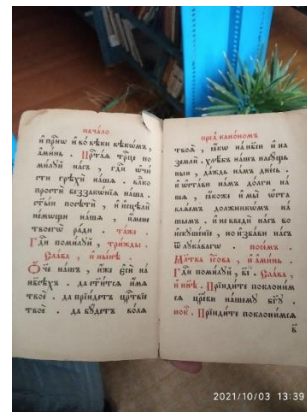 начало
и҆ при́снѡ и҆ во́ вѣки вѣко́мъ,
а҆ми́нь . Прⷭ҇та́ѧ трⷪ҇це по
ми́лꙋй на́съ , гдⷭ҇и ѡ҆чи́
сти грѣхи́ на́шѧ . влⷣко
прости́ беззакѡ́нїѧ на́ша .
ст҃ы́и посѣтѝ , и҆ и҆сцѣлѝ
не́мощи на́шѧ , и҆́мене
твоегѡ̀ ра́ди . та́же
Гдⷭ҇и поми́лꙋй , три́жды .
Сла́ва , и҆ ны́нѣ .
Ѻ҆́ч҃е на́шъ , и҆́же є҆сѝ на
нб҃сѣ́хъ . да ст҃и́тсѧ и҆́мѧ
твоѐ . да прїи́детъ црⷭ҇твїе
твоѐ . да бꙋ́детъ во́лѧ
пред̾ кано́номъ
твоѧ̀ , ꙗ҆́кѡ на нб҃сѝ и҆ на
землѝ . хлѣ́бъ на́шъ насꙋ́щ
ный , да́ждь на́мъ дне́сь .
и҆ ѡ҆ста́ви на́мъ до́лги на́
шѧ , ꙗ҆́коже и҆ мы̀ ѡ҆ста
влѧ́емъ должникѡ́мъ на́
шымъ . и҆ не введѝ на́съ во
и҆скꙋше́нїе , но и҆зба́ви на́съ
ѿ лꙋка́вагѡ . посе́мъ
Мл҃тва і҆с҃ова , и҆ а҆ми́нь .
Гдⷭ҇и поми́лꙋй , в҃і . Сла́ва ,
и҆ нн҃ѣ . Прїиди́те поклони́м
сѧ цр҃е́ви на́шемꙋ бг҃ꙋ .
по́ѵ . Прїиди́те поклони́мсѧ
2021/10/03 13:39